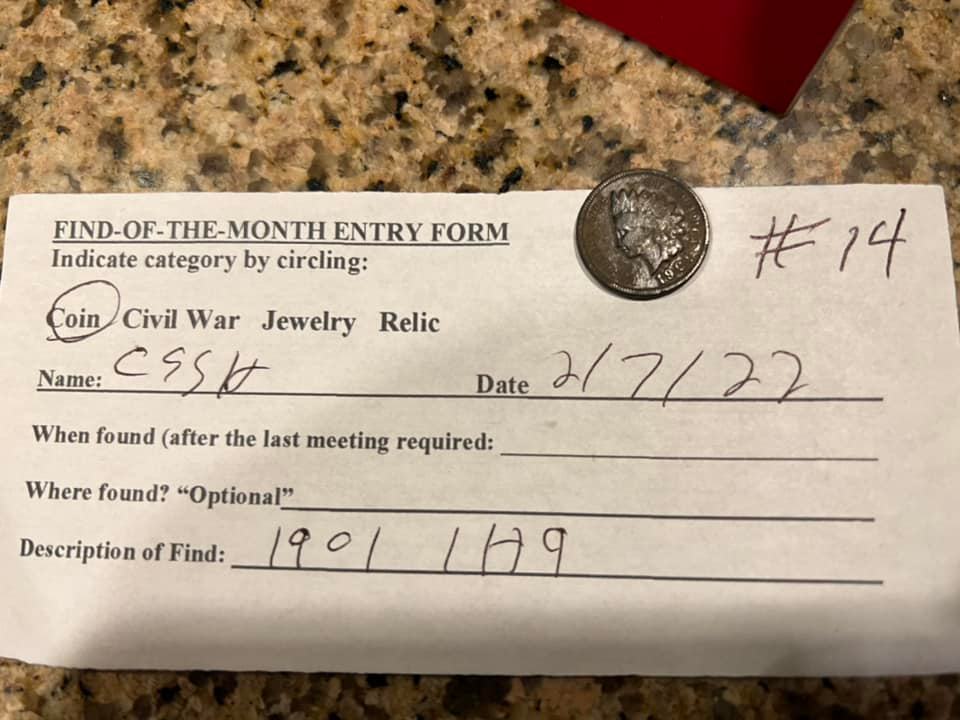 FIND-OF-THE-MONTH ENTRY FORM
# 14
Indicate category by circling:
Coin Civil War Jewelry Relic
Name: CSSH Date 2/7/22
When found (after the last meeting required:
Where found? “Optional”
Description of Find: 1901 IH9